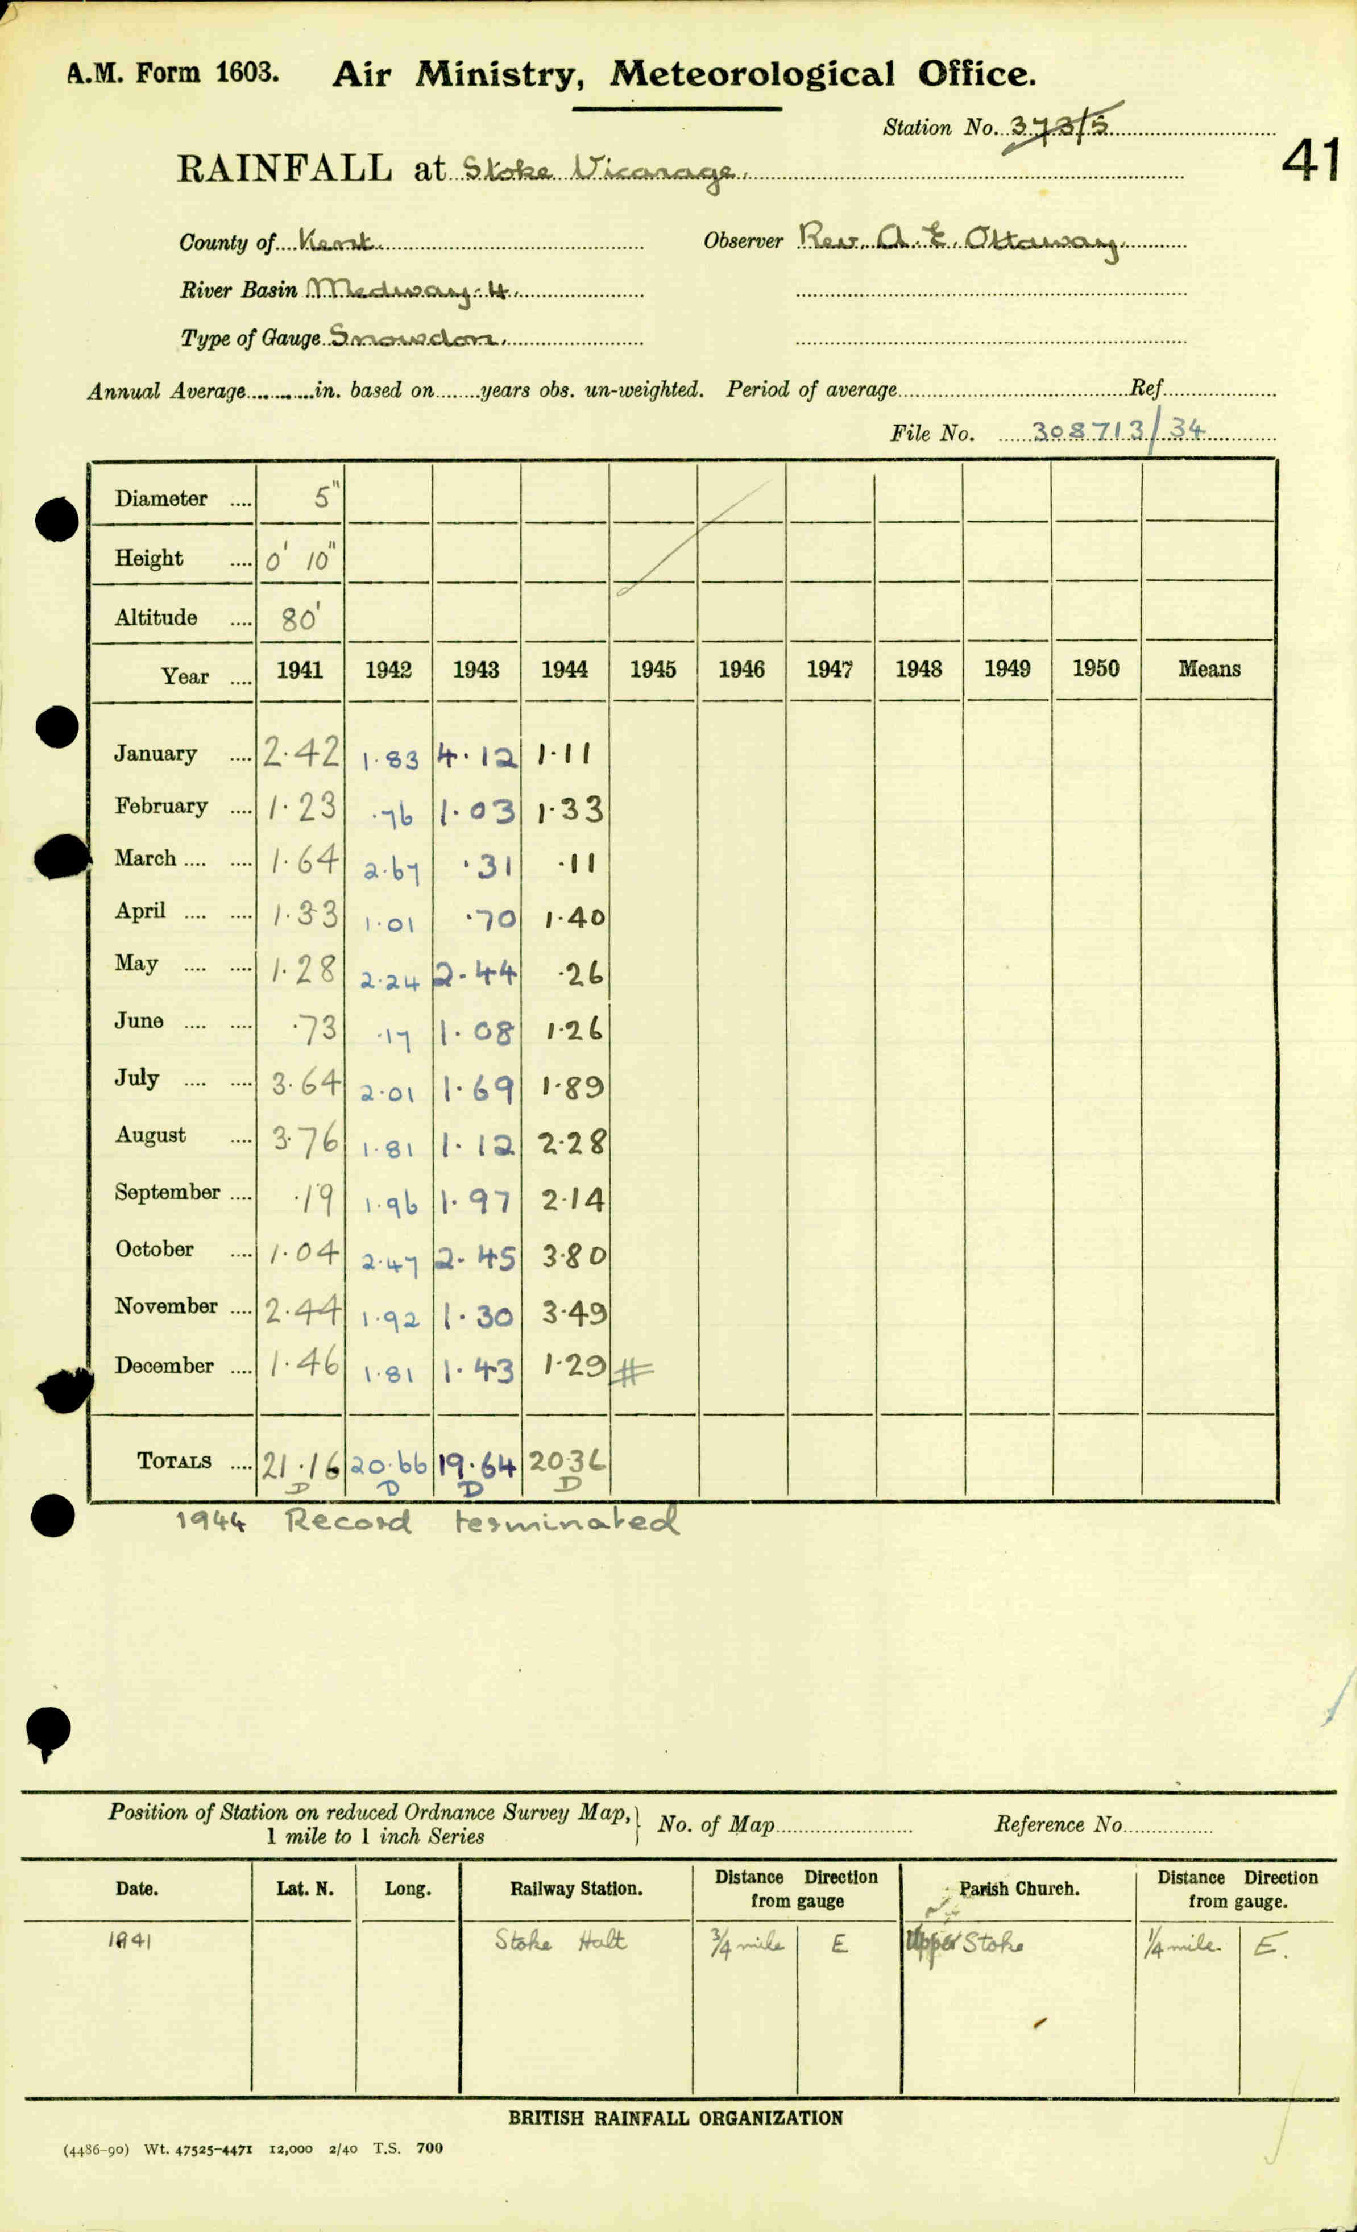 A.M. Form 1603. Air Ministry, Meteorological Office.
Station No. 373/5
41
RAINFALL at Stoke Vicarage.
County of Kent. Observer Rev. A. E. Ottaway.
River Basin Medway. 4.
Type of Gauge Snowdon.
Annual Average............in. based on........years obs. un-weighted. Period of average.................Ref.................
File No. 308713/34
Diameter .... 5"
Height .... 0' 10"
Altitude .... 80'
Year .... 1941 1942 1943 1944 1945 1946 1947 1948 1949 1950 Means
January .... 2.42 1.83 4.12 1.11
February .... 1.23 .76 1.03 1.33
March .... .... 1.64 2.67 .31 .11
April .... .... 1.33 1.01 .70 1.40
May .... .... 1.28 2.24 2.44 .26
June .... .... .73 .17 1.08 1.26
July .... .... 3.64 2.01 1.69 1.89
August .... 3.76 1.81 1.12 2.28
September .... .19 1.96 1.97 2.14
October .... 1.04 2.47 2.45 3.80
November .... 2.44 1.92 1.30 3.49
December .... 1.46 1.81 1.43 1.29 #
TOTALS .... 21.16 20.66 19.64 20.36
D D D D
1944 Record terminated
Position of Station on reduced Ordnance Survey Map, 1 mile to 1 inch Series } No. of Map................ Reference No................
Date. Lat. N. Long. Railway Station. Distance Direction from gauge Parish Church. Distance Direction from gauge.
1941 Stoke Halt 3/4 mile E Upper Stoke 1/4 mile E.
BRITISH RAINFALL ORGANIZATION
(4486-90) Wt. 47525-4471 12,000 2/40 T.S. 700